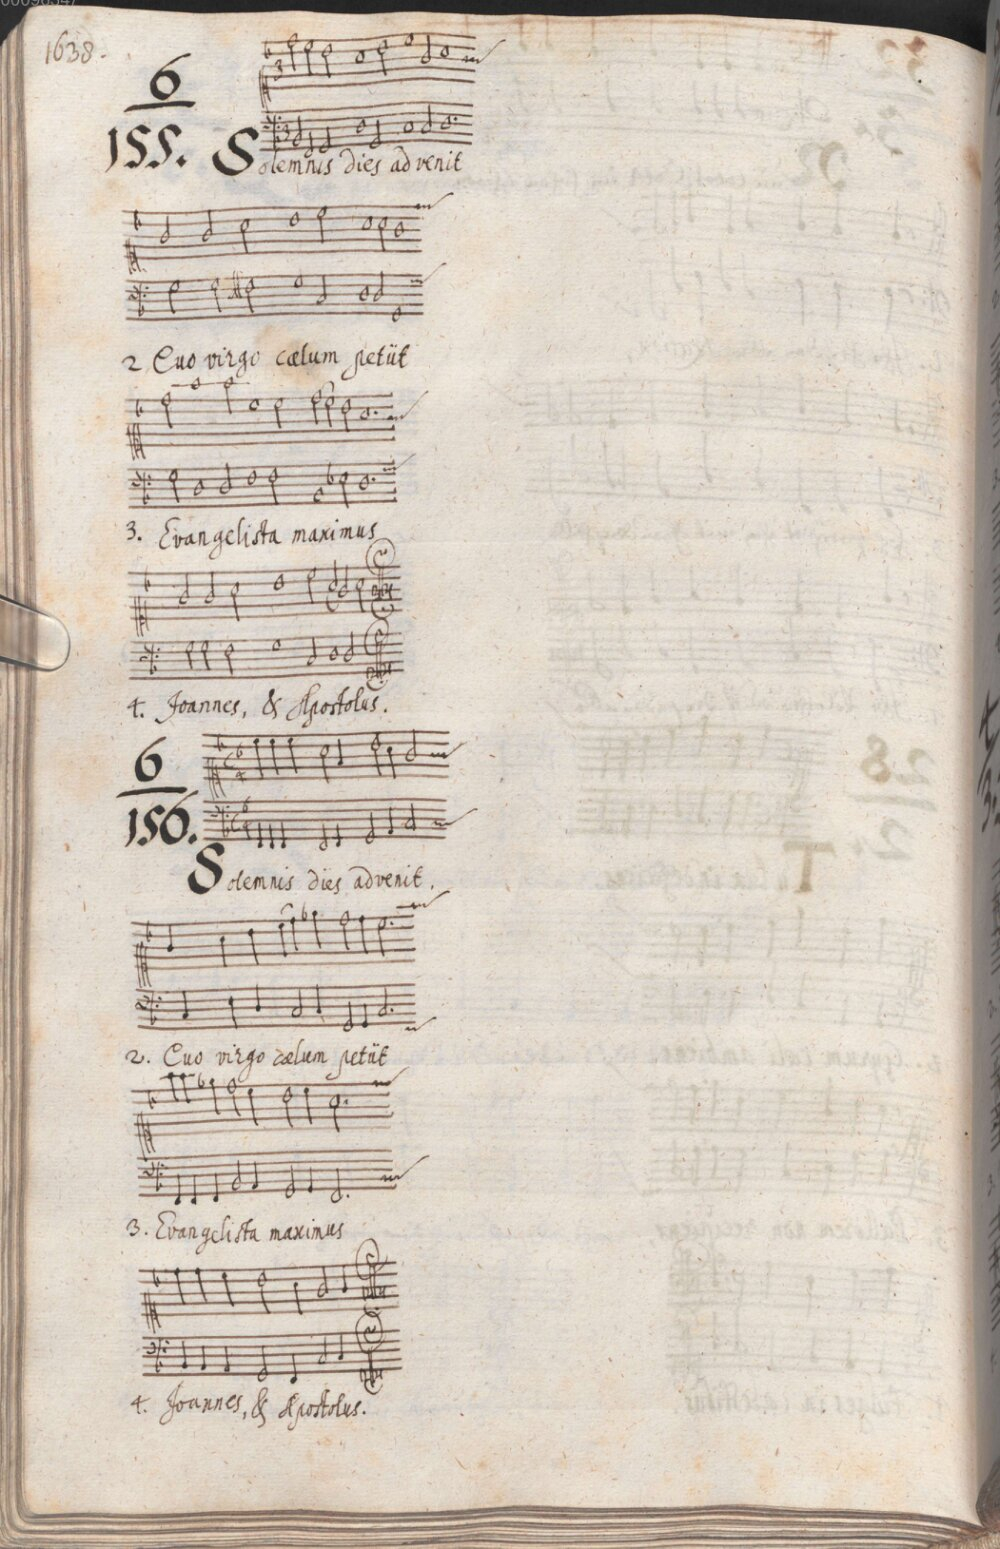 1638.
6
155. Solemnis dies advenit
2 Quo virgo cælum petÿt
3. Evangelista maximus
4. Joannes, & Apostolus.
6
156.
Solemnis dies advenit.
2. Quo virgo cælum petÿt
3. Evangelista maximus
4. Joannes, & Apostolus.